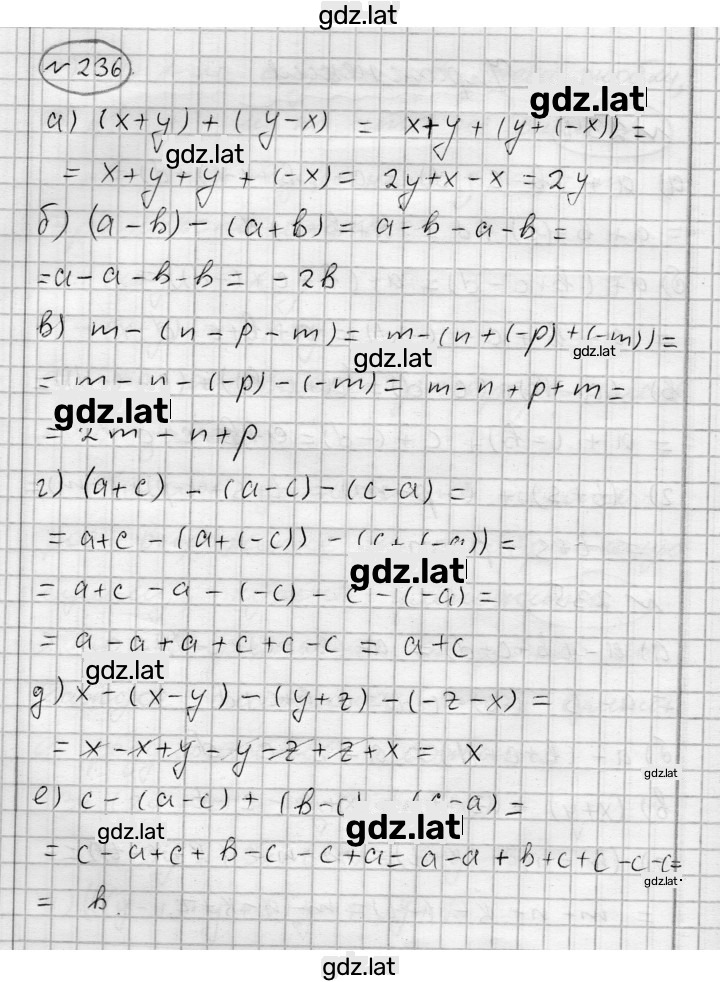 gdz.lat
№236.
gdz.lat
а) (x+y) + (y-x) = x+y + (y+(-x)) =
gdz.lat
= x+y+y + (-x) = 2y+x-x = 2y
б) (a-b) - (a+b) = a-b-a-b =
= a-a-b-b = -2b
в) m-(n-p-m) = m-(n+(-p)+(-m)) =
gdz.lat gdz.lat
= m-n-(-p)-(-m) = m-n+p+m =
gdz.lat
= 2m-n+p
г) (a+c) - (a-c)-(c-a) =
= a+c - (a+(-c)) - (c+(-a)) =
gdz.lat
= a+c -a - (-c) - c-(-a) =
= a-a+a+c+c-c = a+c
gdz.lat
д) x-(x-y)-(y+z)-(-z-x) =
= x-x+y-y-z+z+x = x
gdz.lat
е) c-(a-c)+(b-c) (c-a) =
gdz.lat gdz.lat
= c-a+c+b-c-c+a = a-a+b+c+c-c-c=
gdz.lat
= b.
gdz.lat